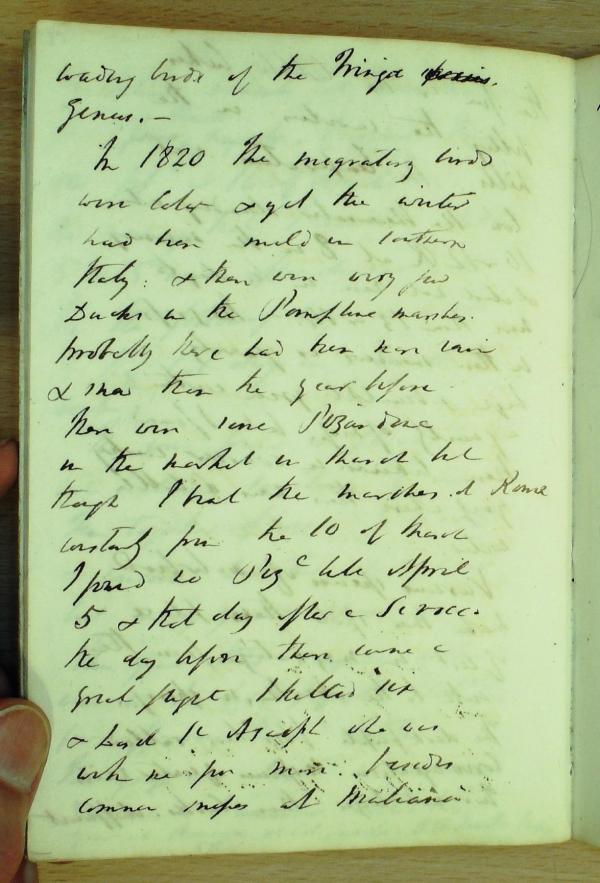 wading birds of the Tringa
Genus. —
In 1820 The migratory birds
were later & yet the winter
had been mild in southern
Italy: & there were very few
Ducks in the Pomptine marshes.
probably there had been more rain
& snow than the year before.
There were some
in the market in March but
though I beat the marshes of Rome
constantly from the 10 of March
I found no till April
5 & that day after a Sirocco
the day before there came a
great flight I killed six
& Lord
with me four more. besides
common snipes at Maliana